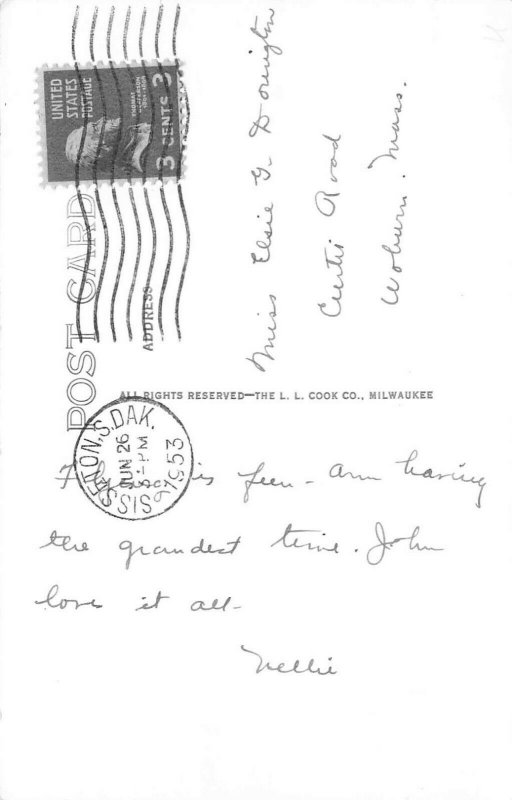 UNITED
STATES
POSTAGE
THOMAS
JEFFERSON
3 CENTS 3
POST CARD
ADDRESS
Miss Elsie G. Dorington
Curtis Road
Woburn. Mass.
ALL RIGHTS RESERVED—THE L. L. COOK CO., MILWAUKEE
SISSETON, S. DAK.
JUN 26
PM
1953
is fun - Am having
the grandest time. John
loves it all-
Nellie